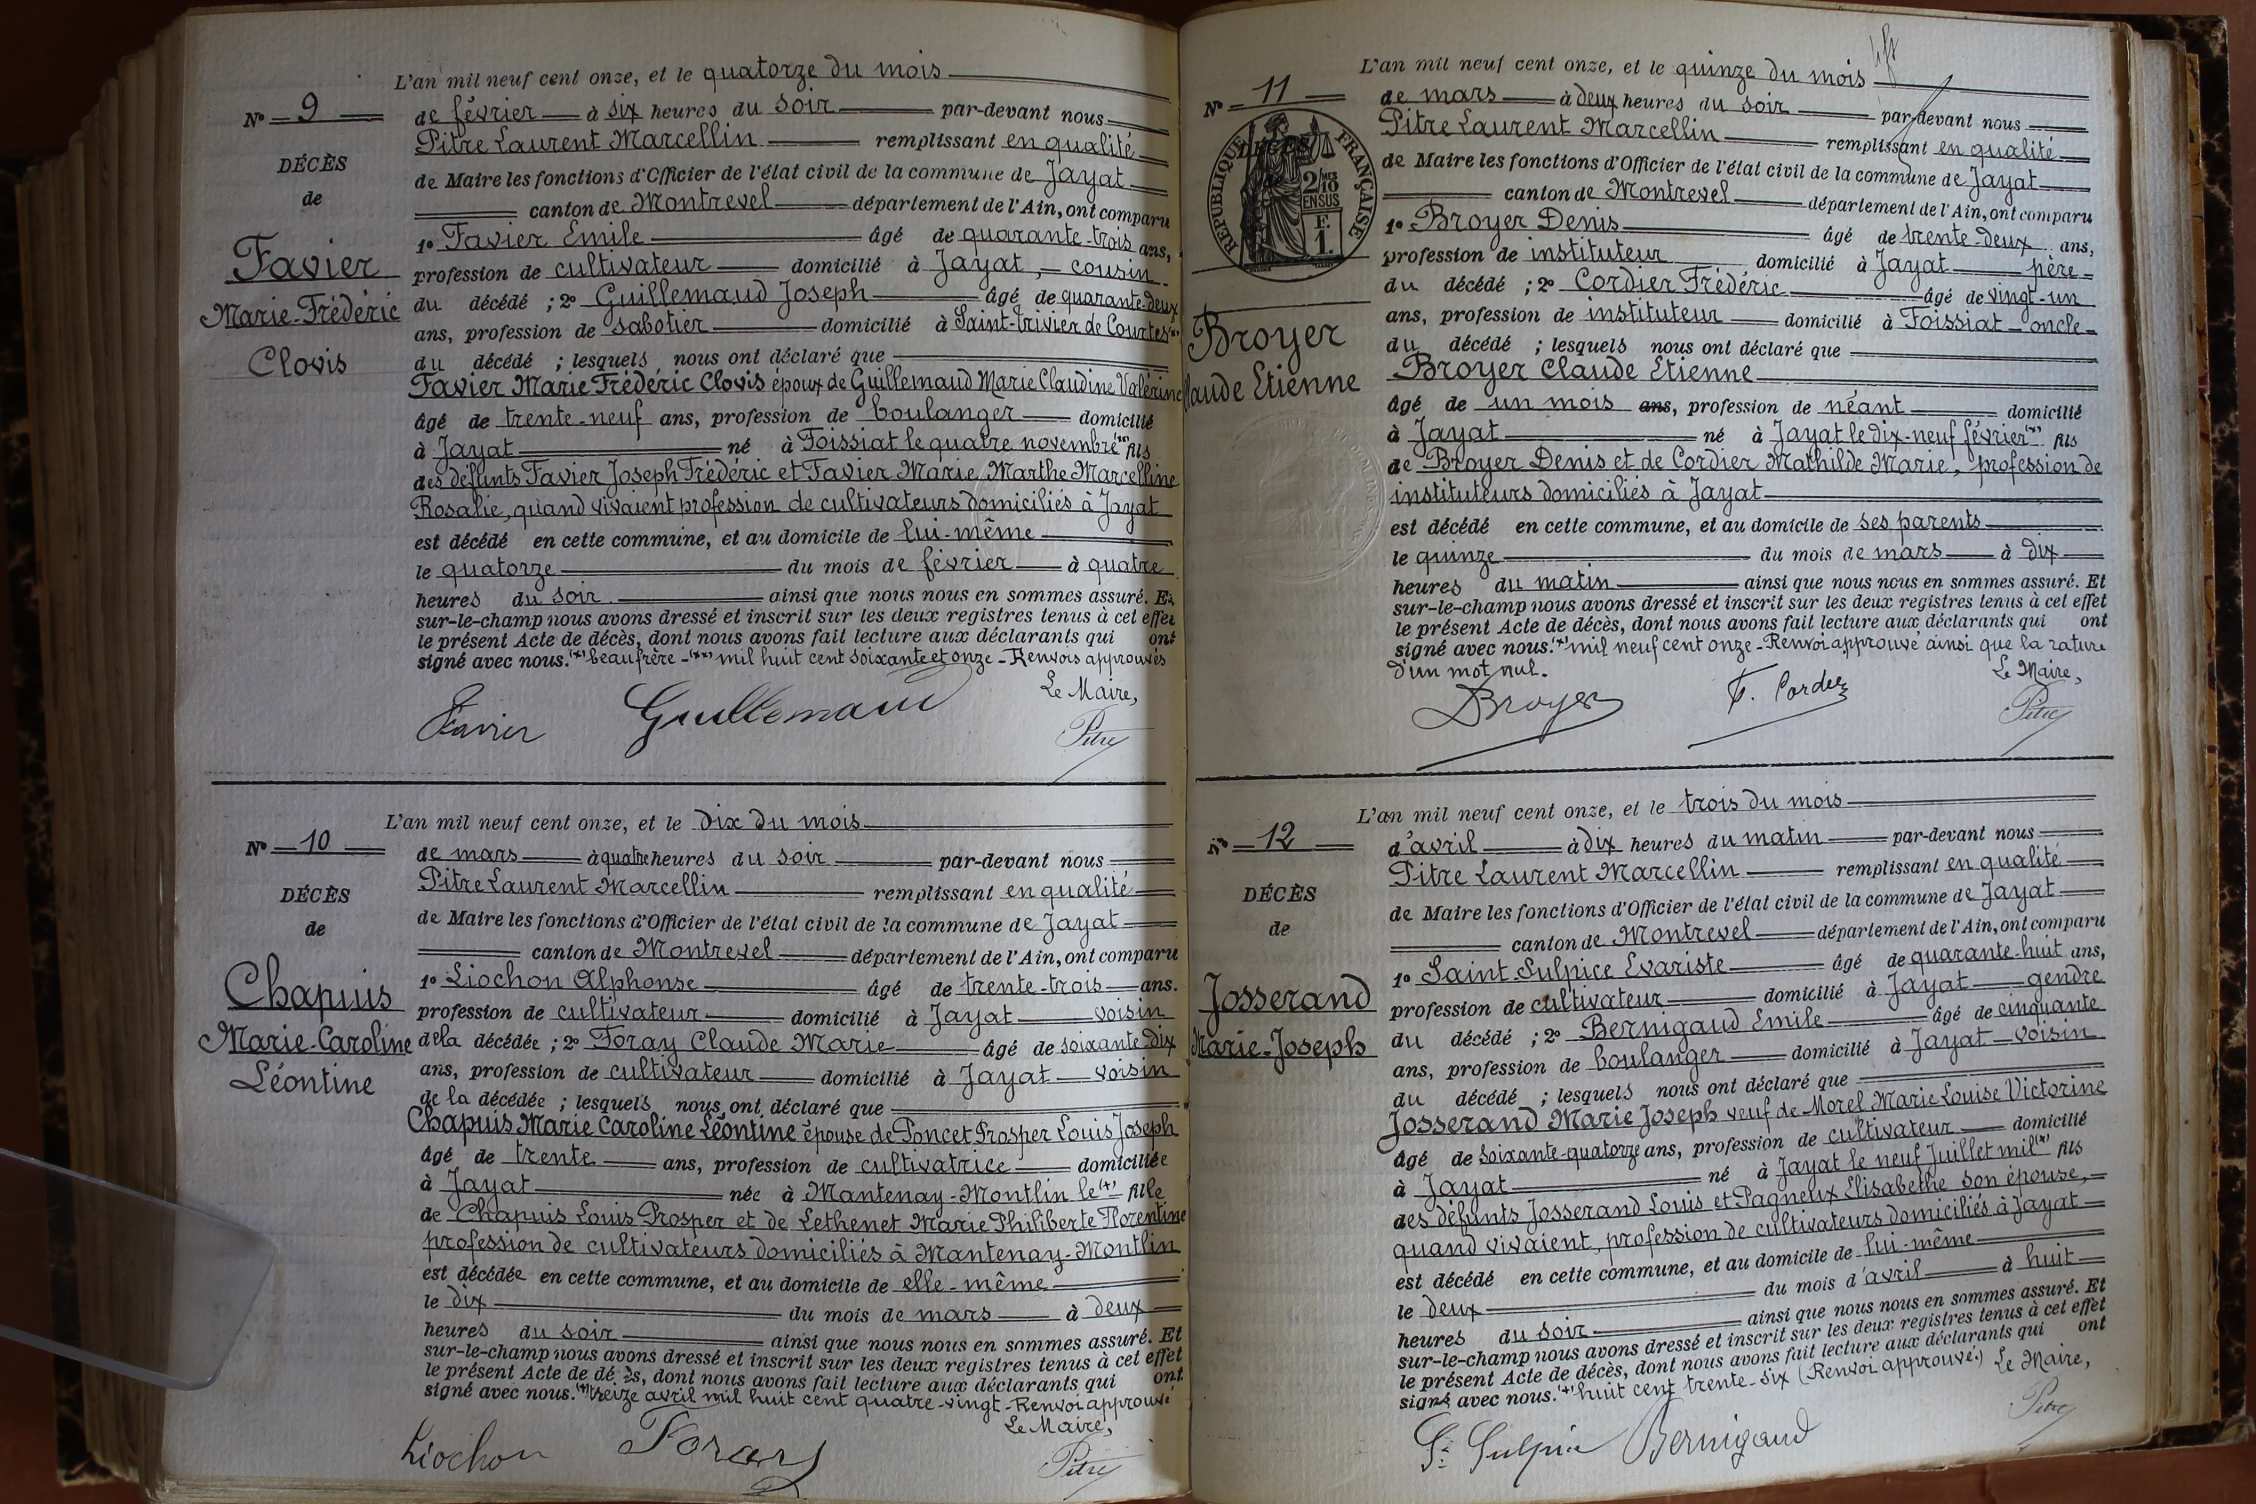 L'an mil neuf cent onze, et le quatorze du mois
N° 9
de février à six heures du soir par-devant nous
Pitre Laurent Marcellin remplissant en qualité
DÉCÈS
de Maire les fonctions d'Officier de l'état civil de la commune de Jayat
de
canton de Montrevel département de l'Ain, ont comparu
1° Favier Emile âgé de quarante-trois ans,
Favier
profession de cultivateur domicilié à Jayat, cousin
Marie-Frédéric
du décédé ; 2° Guillemaud Joseph âgé de quarante-deux
ans, profession de sabotier domicilié à Saint-trivier de Courtes (x)
Clovis
du décédé ; lesquels nous ont déclaré que
Favier Marie Frédéric Clovis époux de Guillemaud Marie Claudine Valérine
âgé de trente-neuf ans, profession de boulanger domicilié
à Jayat né à Foissiat le quatre novembre (xx) fils
des défunts Favier Joseph Frédéric et Favier Marie Marthe Marcelline
Rosalie, quand vivaient profession de cultivateurs domiciliés à Jayat
est décédé en cette commune, et au domicile de lui-même
le quatorze du mois de février à quatre
heures du soir ainsi que nous nous en sommes assuré. Et
sur-le-champ nous avons dressé et inscrit sur les deux registres tenus à cet effet
le présent Acte de décès, dont nous avons fait lecture aux déclarants qui ont
signé avec nous. (x) beaufrère - (xx) mil huit cent soixante et onze - Renvois approuvés
Le Maire,
Favier Guillemaud Pitre
L'an mil neuf cent onze, et le dix du mois
N° 10
de mars à quatre heures du soir par-devant nous
Pitre Laurent Marcellin remplissant en qualité
DÉCÈS
de Maire les fonctions d'Officier de l'état civil de la commune de Jayat
de
canton de Montrevel département de l'Ain, ont comparu
1° Liochon Alphonse âgé de trente-trois ans.
Chapuis
profession de cultivateur domicilié à Jayat voisin
Marie-Caroline
de la décédée ; 2° Foray Claude Marie âgé de soixante-dix
Léontine
ans, profession de cultivateur domicilié à Jayat voisin
de la décédée ; lesquels nous ont déclaré que
Chapuis Marie Caroline Léontine épouse de Poncet Prosper Louis Joseph
âgé de trente ans, profession de cultivatrice domiciliée
à Jayat née à Mantenay-Montlin le (+) fille
de Chapuis Louis Prosper et de Lethenet Marie Philiberte Florentine
profession de cultivateurs domiciliés à Mantenay-Montlin
est décédée en cette commune, et au domicile de elle-même
le dix du mois de mars à deux
heures du soir ainsi que nous nous en sommes assuré. Et
sur-le-champ nous avons dressé et inscrit sur les deux registres tenus à cet effet
le présent Acte de décès, dont nous avons fait lecture aux déclarants qui ont
signé avec nous. (+) treize avril mil huit cent quatre-vingt - Renvoi approuvé
Le Maire,
Liochon Foray Pitre
L'an mil neuf cent onze, et le quinze du mois
N° 11
de mars à deux heures du soir par-devant nous
Pitre Laurent Marcellin remplissant en qualité
RÉPUBLIQUE FRANÇAISE
2/10 EN SUS
F. 1.
de Maire les fonctions d'Officier de l'état civil de la commune de Jayat
canton de Montrevel département de l'Ain, ont comparu
1° Broyer Denis âgé de trente-deux ans,
profession de instituteur domicilié à Jayat père
du décédé ; 2° Cordier Frédéric âgé de vingt-un
ans, profession de instituteur domicilié à Foissiat oncle
Broyer
du décédé ; lesquels nous ont déclaré que
Claude Etienne
Broyer Claude Etienne
âgé de un mois ans, profession de néant domicilié
à Jayat né à Jayat le dix-neuf février (x) fils
de Broyer Denis et de Cordier Mathilde Marie, profession de
instituteurs domiciliés à Jayat
est décédé en cette commune, et au domicile de ses parents
le quinze du mois de mars à dix
heures du matin ainsi que nous nous en sommes assuré. Et
sur-le-champ nous avons dressé et inscrit sur les deux registres tenus à cet effet
le présent Acte de décès, dont nous avons fait lecture aux déclarants qui ont
signé avec nous. (x) mil neuf cent onze - Renvoi approuvé ainsi que la rature
d'un mot nul. Le Maire,
Broyer F. Cordier Pitre
L'an mil neuf cent onze, et le trois du mois
N° 12
d'avril à dix heures du matin par-devant nous
Pitre Laurent Marcellin remplissant en qualité
DÉCÈS
de Maire les fonctions d'Officier de l'état civil de la commune de Jayat
de
canton de Montrevel département de l'Ain, ont comparu
1° Saint-Sulpice Evariste âgé de quarante-huit ans,
Josserand
profession de cultivateur domicilié à Jayat gendre
Marie-Joseph
du décédé ; 2° Bernigaud Emile âgé de cinquante
ans, profession de boulanger domicilié à Jayat voisin
du décédé ; lesquels nous ont déclaré que
Josserand Marie Joseph veuf de Morel Marie Louise Victorine
âgé de soixante-quatorze ans, profession de cultivateur domicilié
à Jayat né à Jayat le neuf Juillet mil (x) fils
des défunts Josserand Louis et Pagneux Elisabethe son épouse,
quand vivaient, profession de cultivateurs domiciliés à Jayat
est décédé en cette commune, et au domicile de lui-même
le deux du mois d'avril à huit
heures du soir ainsi que nous nous en sommes assuré. Et
sur-le-champ nous avons dressé et inscrit sur les deux registres tenus à cet effet
le présent Acte de décès, dont nous avons fait lecture aux déclarants qui ont
signé avec nous. (+) huit cent trente-six (Renvoi approuvé.) Le Maire,
St Sulpice Bernigaud Pitre